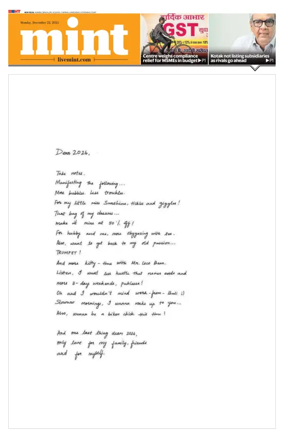 mint
livemint.com
हार्दिक आभार
GST
Centre weight compliance
relief for MSMEs in budget ▶P1
Kotak not listing subsidiaries
as rivals go ahead ▶P1
Dear 2026,
Take notes.
Manifesting the following...
More bubbles less troubles.
For my little miss Sunshine, tickles and giggles!
That bag of my dreams...
make it mine at 50% off!
For hubby and me, more
Also, want to get back to my old passion...
TRUMPET!
And more kitty-time with the law
Listen, I need less hustle that never ends and
more 3-day weekends, please!
Oh and I wouldn't mind work-from-Bali :)
Summer mornings, I wanna wake up to you...
Also, wanna be a biker chick
And one last thing dear 2026,
only love for my family, friends
and for myself.